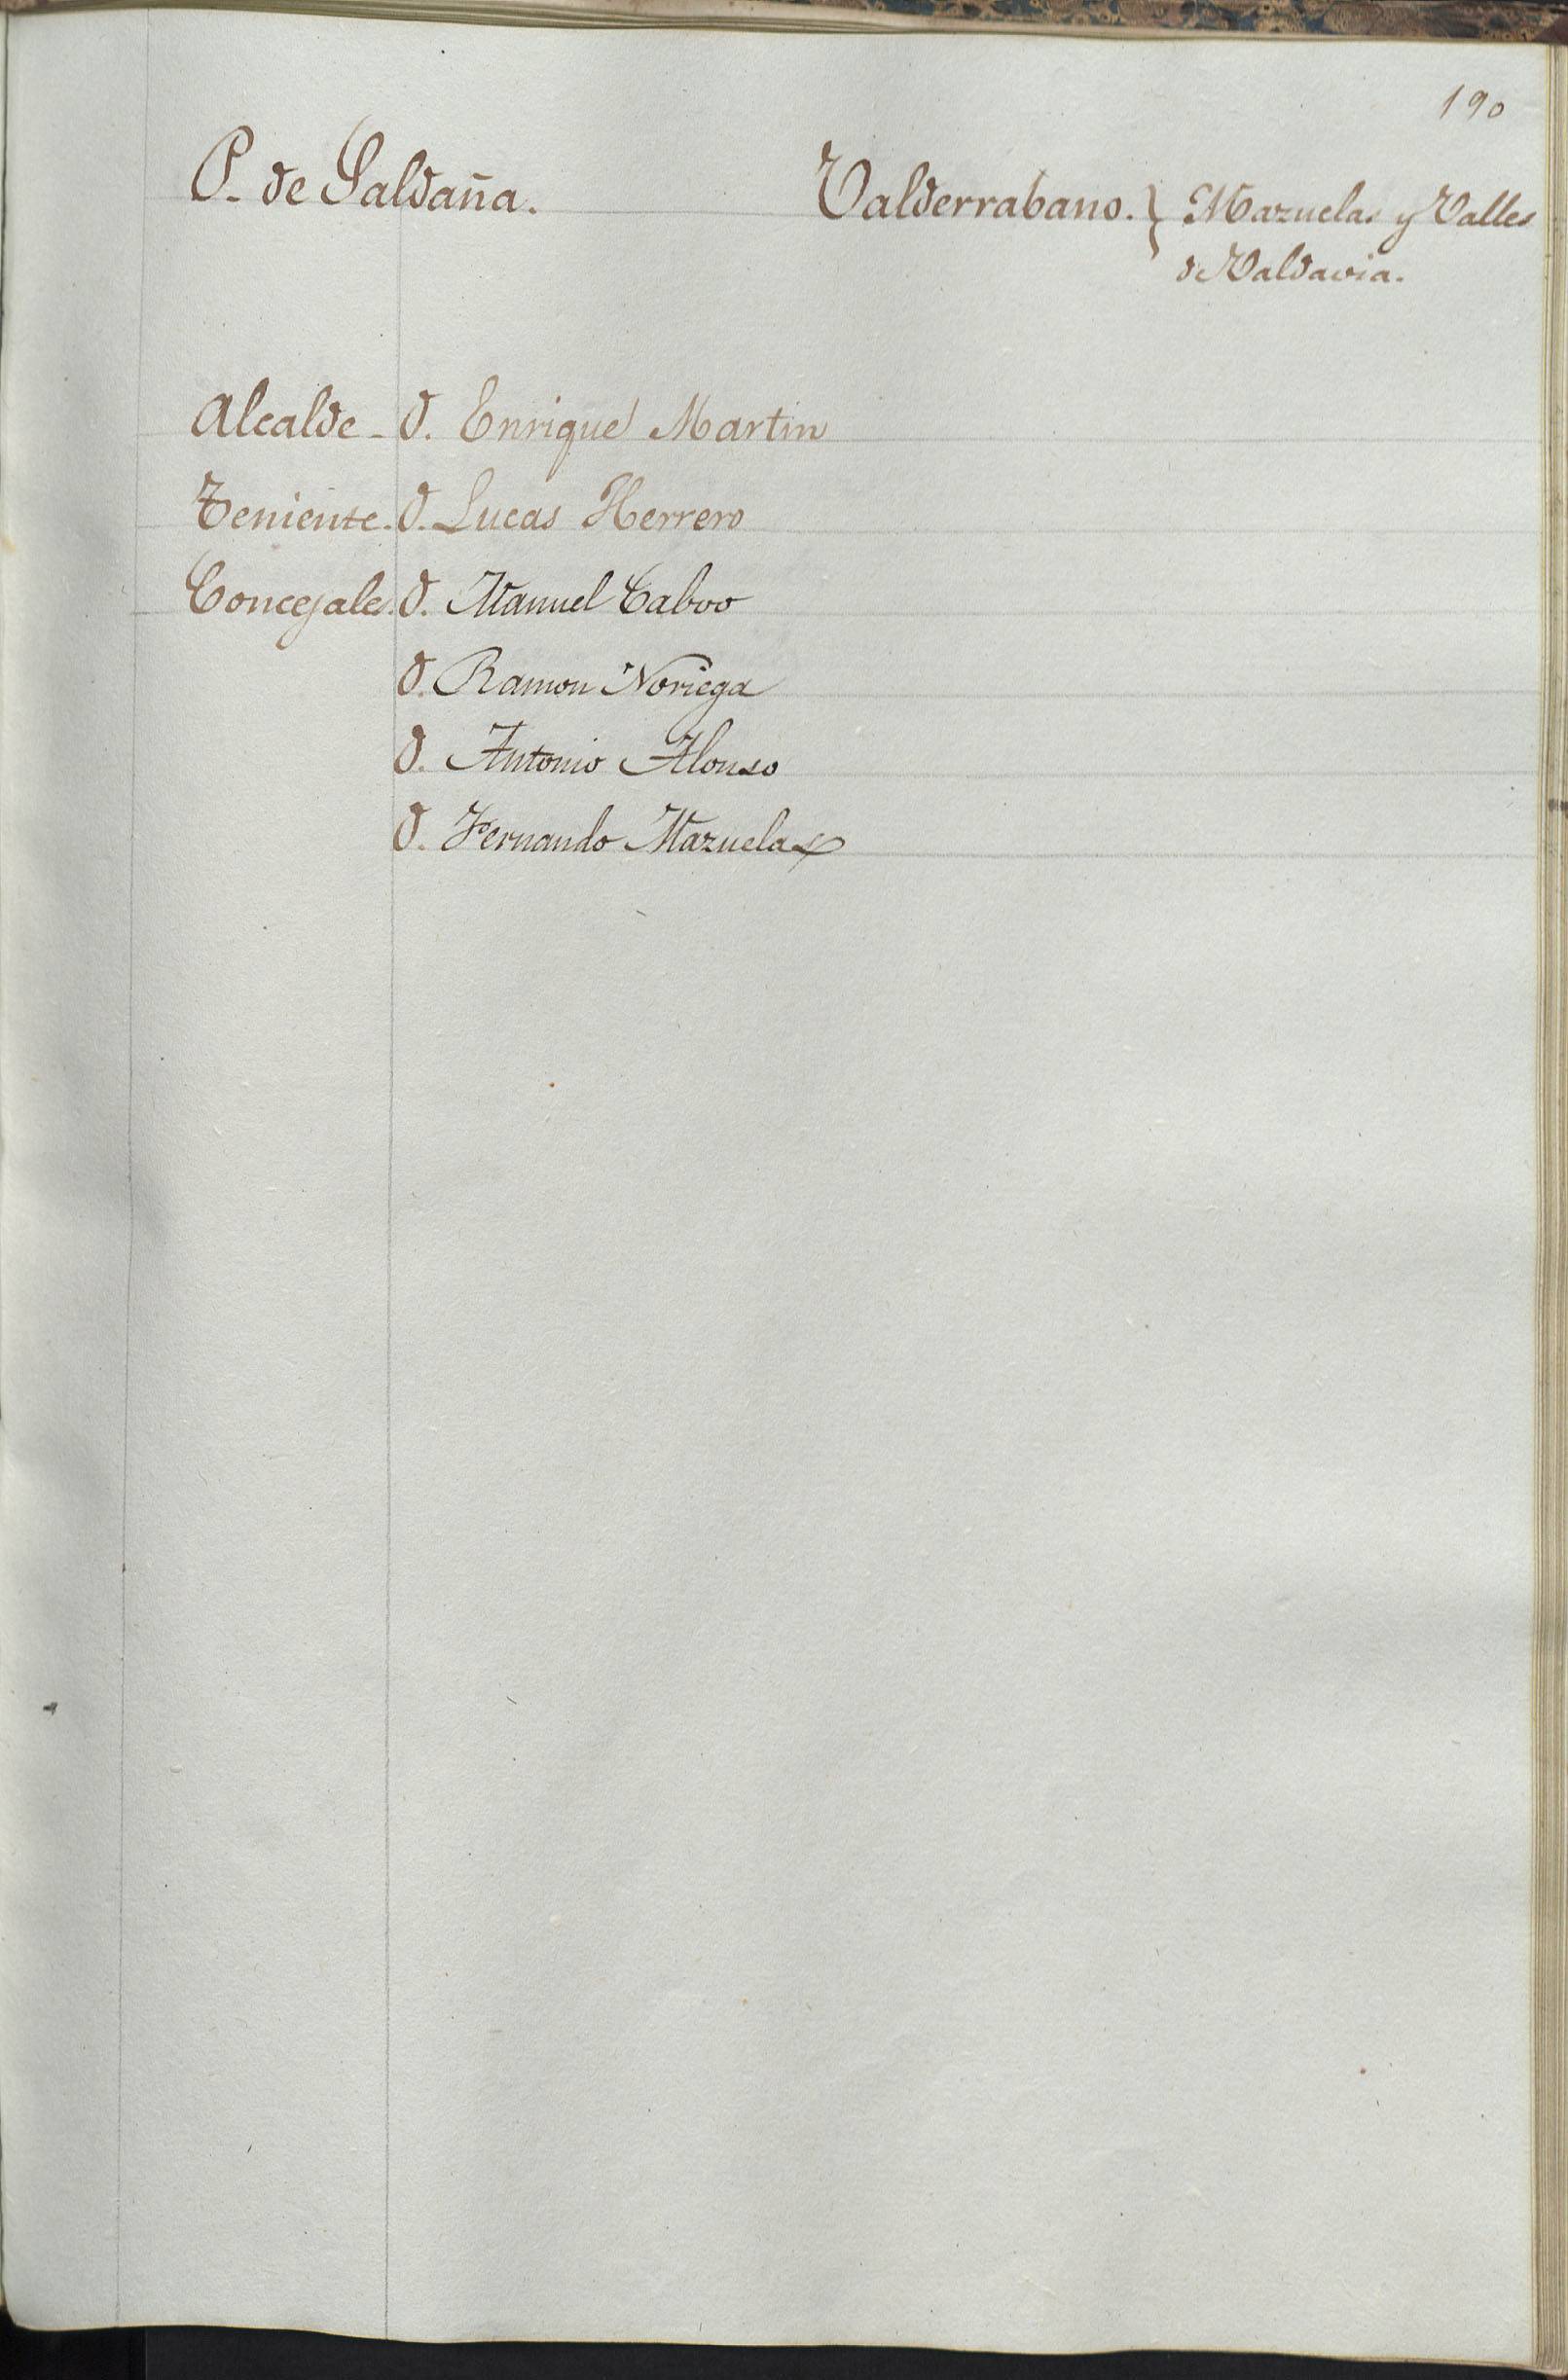 190
P. de Saldaña. Valderrabano. } Mazuelas y Valles
de Valdavia.
Alcalde - D. Enrique Martin
Teniente. D. Lucas Herrero
Concejales. D. Manuel
D. Ramon Noriega
D. Antonio Alonso
D. Fernando Mazuelas